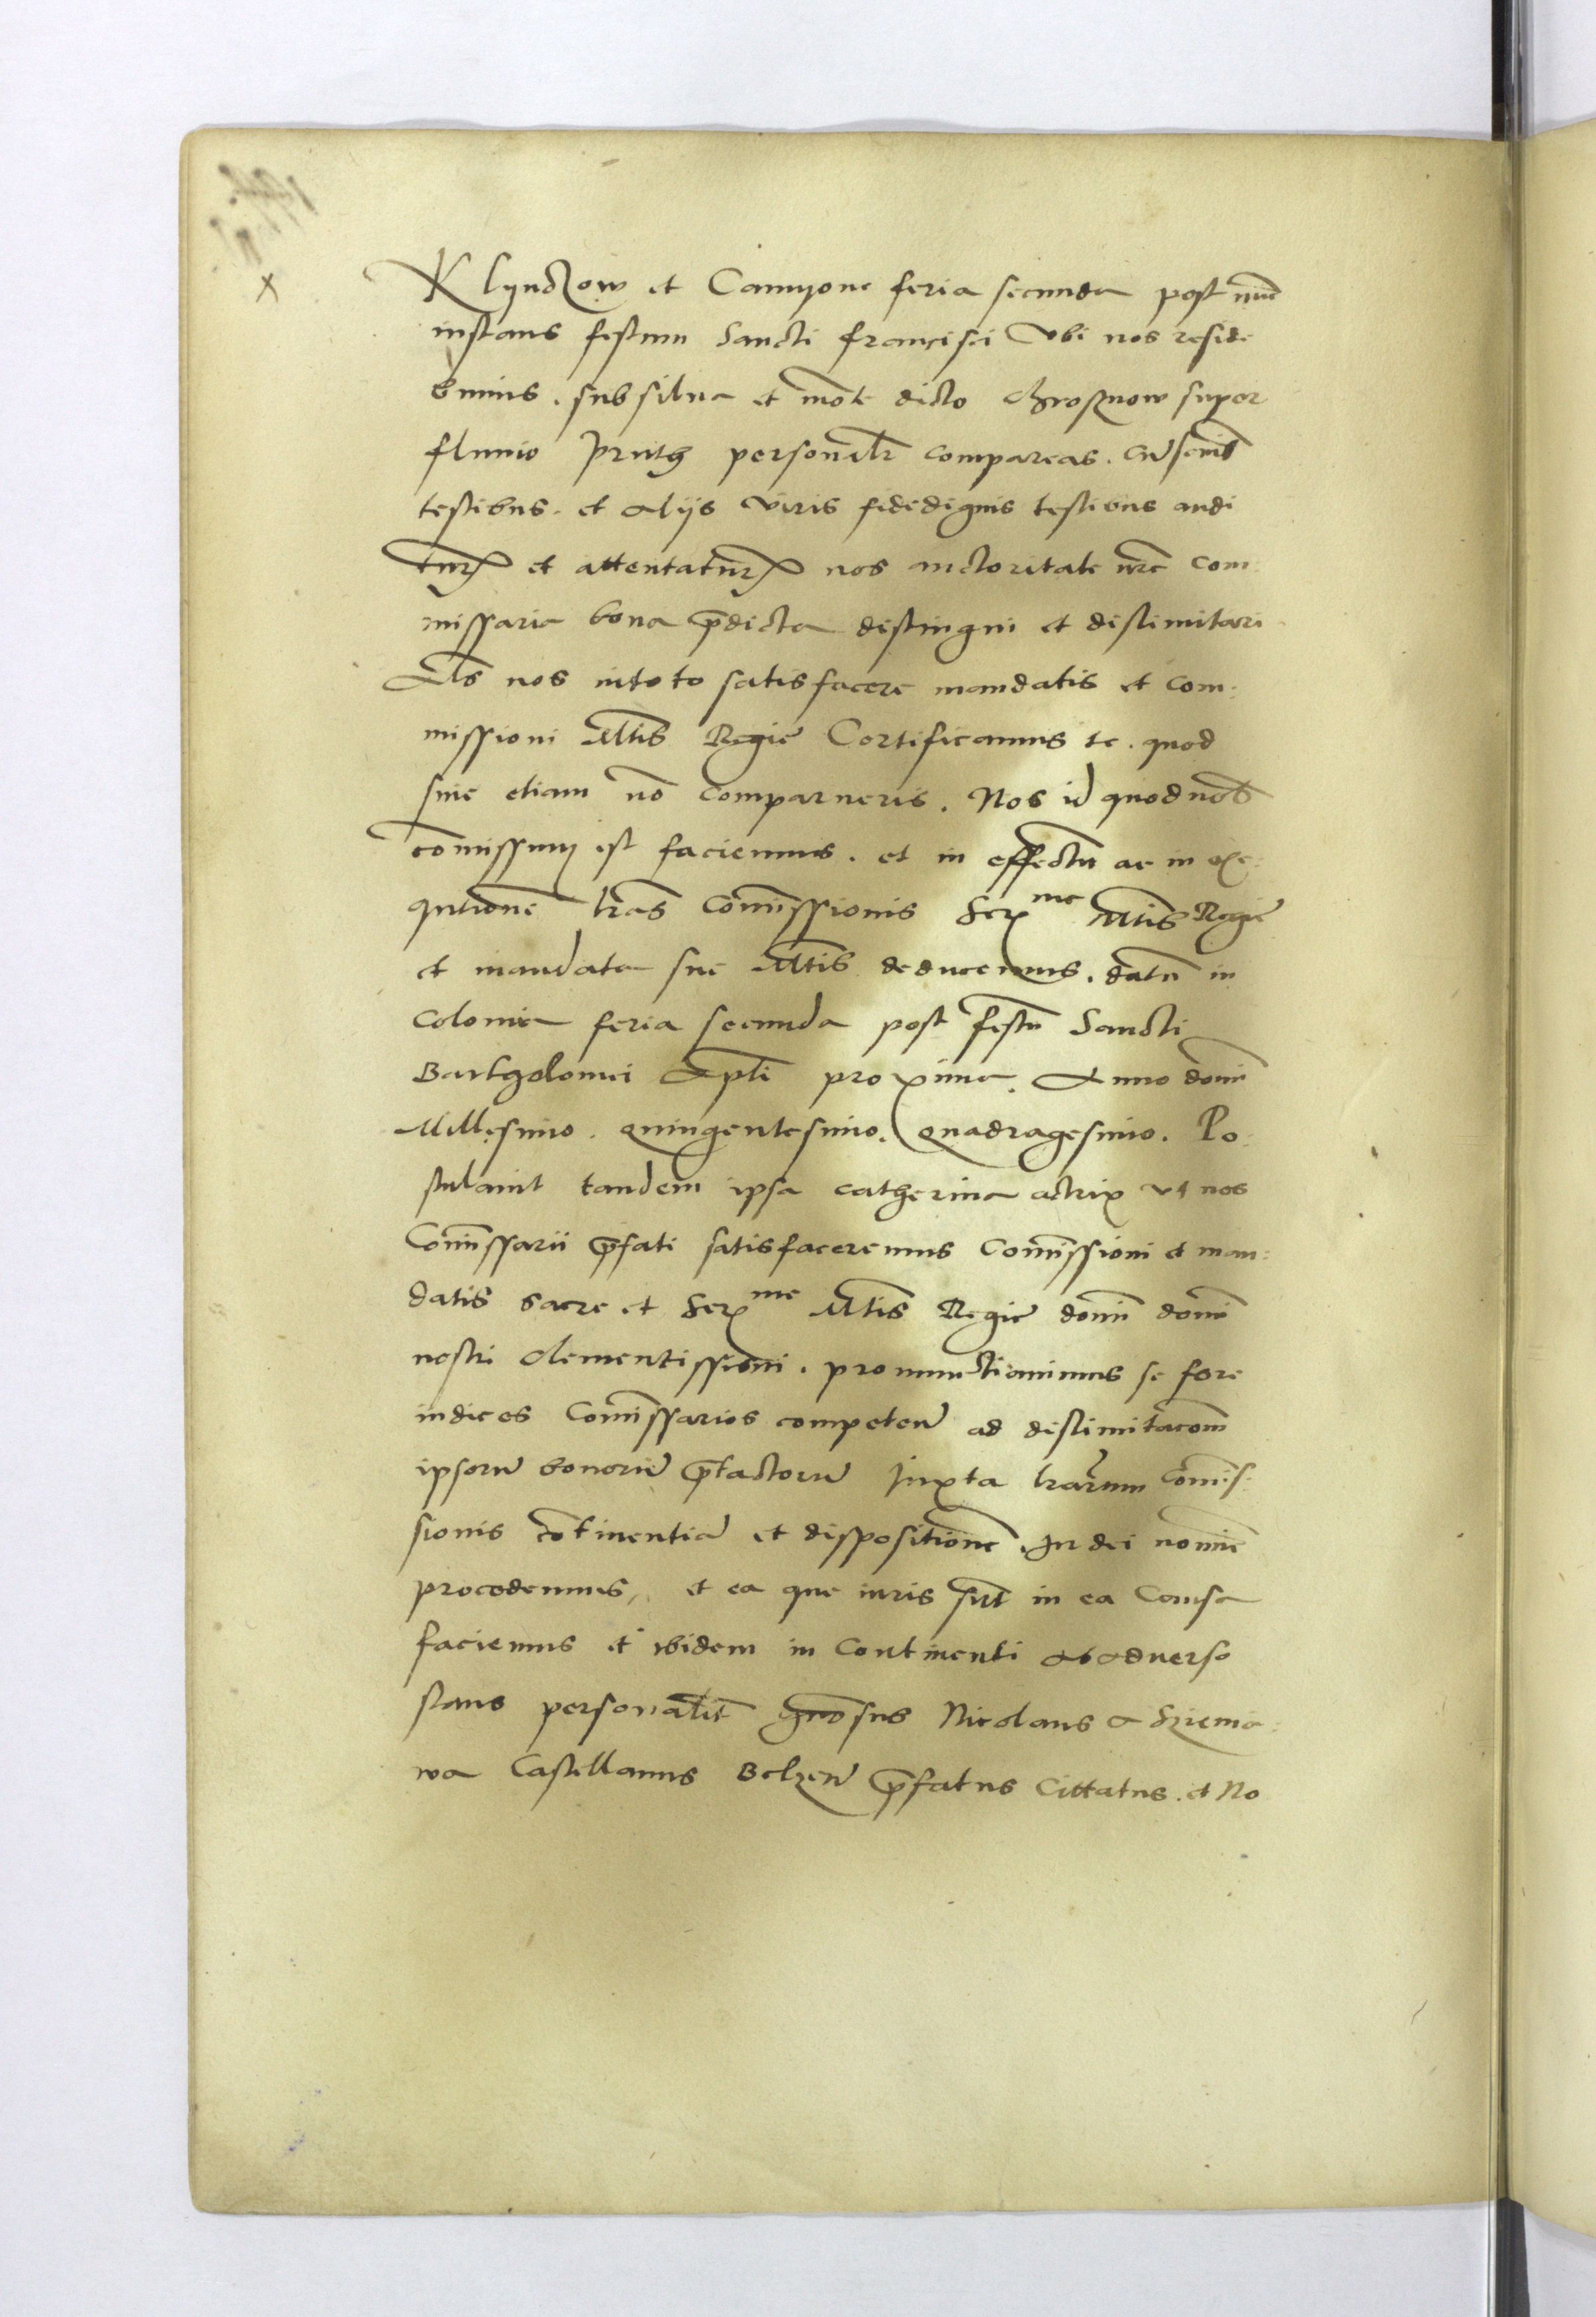 Klynczow et Camyone feria secunda post nūc
instans festum Sancti francisci Vbi nos reside
bimus . sub silua et mōte dicto Chrosznow super
fluuio Pruth personalr compareas . cū senib9
testibus . et alijs viris fidedignis testibus audi
turꝰ et attentaturꝰ nos auctoritate nr̄e com:
missaria bona p̄dicta distingui et dislimitari
Als nos intoto satisfacere mandatis et com:
missioni Mtis Regie Certificamus te . quod
siue etiam nō comparueris . Nos id quod nob
comissum est faciemus . et in effectū ac in exe:
qutionē lr̄as Comissionis Ser^me Mtis Regie
et mandata sue Mtis deducemus . datū in
Colomia feria secunda post festū Sancti
Barthgolomei Apli proxima . Anno domī
Millesimo . quingentesimo . quadragesimo . Po:
stulauit tandem ipsa catherina actrix vt nos
Comissarii p̄fati satisfaceremus Comissioni et man:
datis sacre et Ser^me Mtis Regie domī domī
nostri clementissimi . pronunctiauimus se fore
iudices Comissarios competen̄ ad dislimitacom
ipsorū bonorū p̄tactorū Juxta lr̄arum Comis:
sionis cōtinentiā et dispositionē . In dei nomīe
procedemus, et ea que iuris sūt in ea Causa
faciemus et ibidem in Continenti ab aduerso
stans personalit gn̄osus Nicolaus a Sziemia:
wa Castellanus Belzen̄ p̄fatus Cittatus . et No